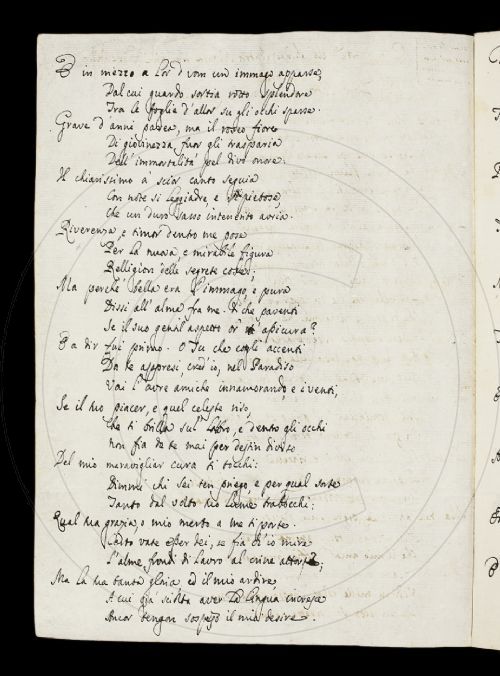 E in mezzo a lor d'uom un'immago apparse,
Dal cui guardo sortia rotto splendore
Tra le foglie d'allor su gli occhi sparse.
Grave d'anni parea, ma il roseo fiore
Di giovinezza fuor gli trasparia
Dell'immortalità pel divo onore.
Il chiarissimo a scior canto seguia
Con note sì leggiadre, e sì pietose,
Che un duro sasso intenerito avria.
Riverenza, e timor dentro me pose
Per la nuova, e mirabile figura
Religion delle segrete cose;
Ma perchè bella era l'immago, e pura
Dissi all'alma fra me: Di che paventi
Se il suo gentil aspetto or t'assicura?
E a dir fui primo. O Tu che cogli accenti
Da te appresi cred'io, nel Paradiso
Vai l'aere amiche innamorando, e i venti,
Se il tuo piacer, e quel celeste riso,
Che ti brilla sul labro, e dentro gli occhi
Non fia da te mai per destin diviso
Del mio meravigliar cura ti tocchi:
Dimmi chi sei ten priego, e per qual sorte
Tanto dal volto tuo lume trabocchi;
Qual tua grazia, o mio merto a me ti porte.
vate esser dei, se fia ch'io mire
L'alme frondi di Lauro al crine attorte;
Ma la tua tanta gloria ed il mio ardire
A cui già sciolta aver la lingua incresce
Ancor tengon sospeso il mio desire.